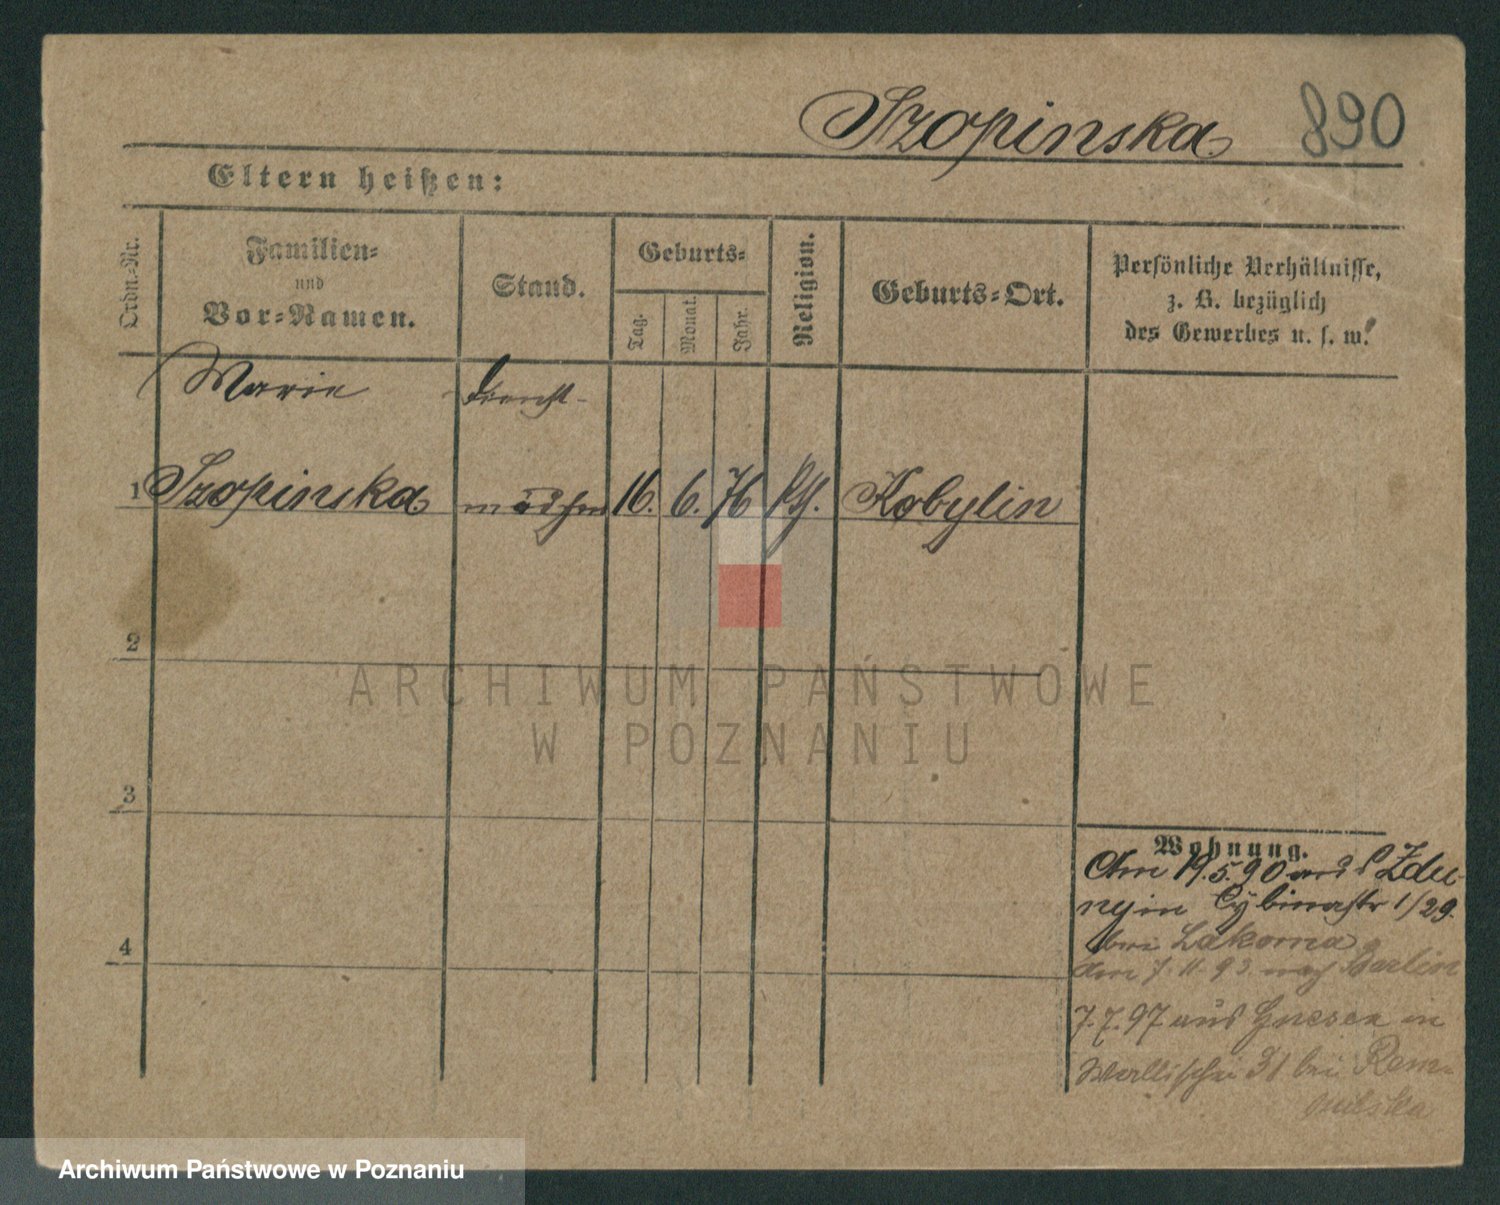 Szopinska 890
Eltern heißen:
Ordn.-Nr.
Familien-
und
Vor-Namen.
Stand.
Geburts-
Tag.
Monat.
Jahr.
Religion.
Geburts-Ort.
Persönliche Verhältnisse,
z. B. bezüglich
des Gewerbes u. s. w.
Marie Dienst-
1 Szopinska mädchen 16. 6. 76 kth. Kobylin
2
3
4
Wohnung.
Am 19.5.90 aus Zdu-
ny in Cybinastr 1/29.
bei Lakoma
den 7.11.93 nach Berlin
7.7.97 aus Gnesen in
Wallischei 31 bei
ARCHIWUM PAŃSTWOWE
W POZNANIU
Archiwum Państwowe w Poznaniu